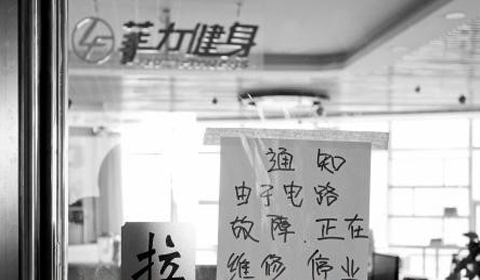 菲力健身
通知
由于电路
故障.正在
维修 停业